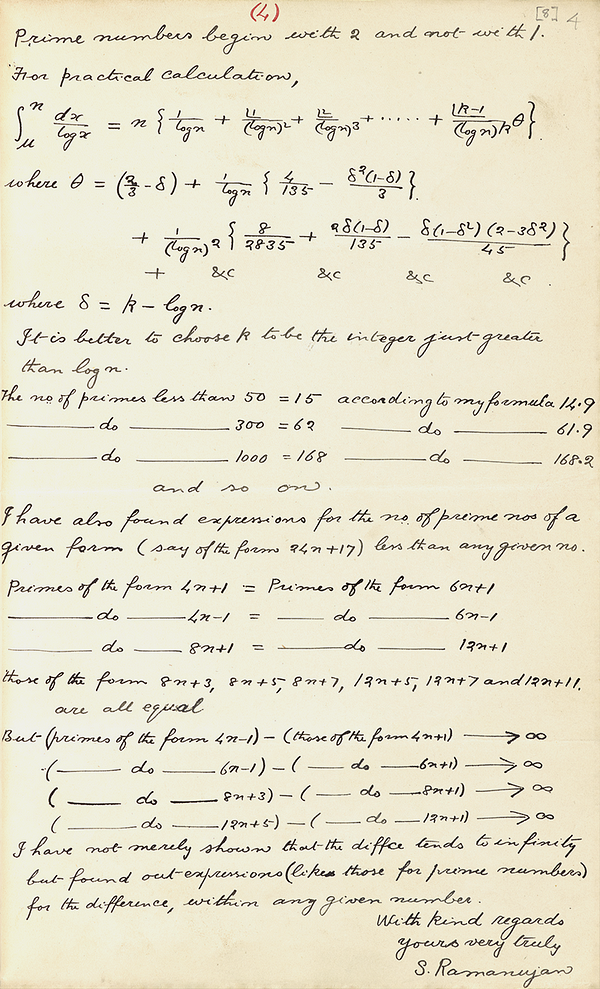 (4)
[8] 4
Prime numbers begin with 2 and not with 1.
For practical calculation,
∫_μ^n dx/log x = n { 1/log n + |1/(log n)² + |2/(log n)³ + ..... + |k-1/(log n)^k θ }.
where θ = (2/3 - δ) + 1/log n { 4/135 - δ²(1-δ)/3 }
+ 1/(log n)² { 8/2835 + 2δ(1-δ)/135 - δ(1-δ²)(2-3δ²)/45 }
+ &c &c &c &c .
where δ = k - log n.
It is better to choose k to be the integer just greater
than log n.
The no of primes less than 50 = 15 according to my formula 14.9
——— do ——— 300 = 62 ——— do ——— 61.9
——— do ——— 1000 = 168 ——— do ——— 168.2
and so on.
I have also found expressions for the no. of prime nos of a
given form (say of the form 24n+17) less than any given no.
Primes of the form 4n+1 = Primes of the form 6n+1
——— do ——— 4n-1 = —— do ——— 6n-1
——— do —— 8n+1 = ——— do ——— 12n+1
those of the form 8n+3, 8n+5, 8n+7, 12n+5, 12n+7 and 12n+11.
are all equal
But (primes of the form 4n-1) - (those of the form 4n+1) ⟶ ∞
(—— do —— 6n-1) - (—— do —— 6n+1) ⟶ ∞
(—— do —— 8n+3) - (—— do —— 8n+1) ⟶ ∞
(—— do —— 12n+5) - (—— do —— 12n+1) ⟶ ∞
I have not merely shown that the diffce tends to infinity
but found out expressions (like those for prime numbers)
for the difference, within any given number.
With kind regards
yours very truly
S. Ramanujan